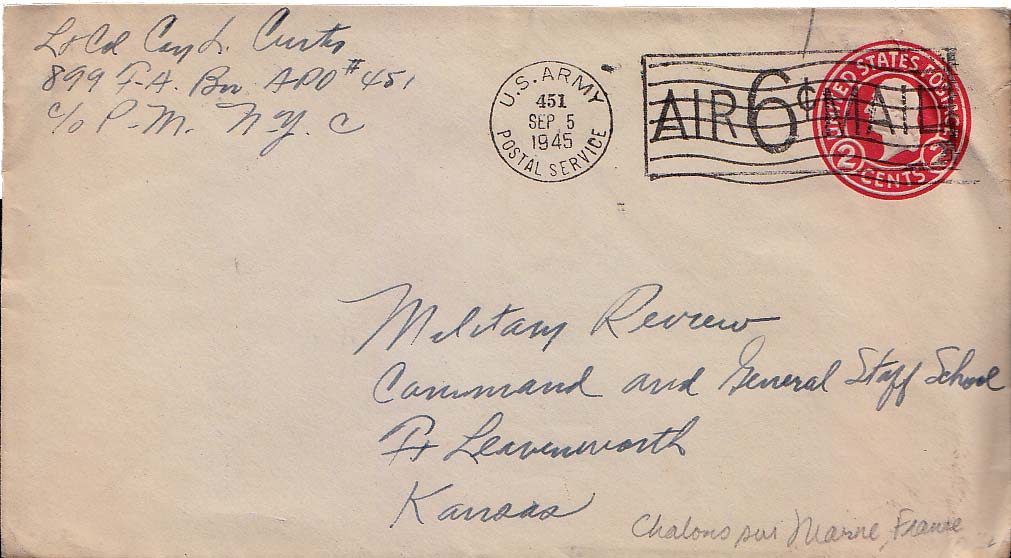 Lt Col Cary L. Curtis
899 F.A. Bn APO #451
c/o P.M. N.Y. C
U.S. ARMY
451
SEP 5
1945
POSTAL SERVICE
AIR 6¢ MAIL
UNITED STATES POSTAGE
2 CENTS 2
Military Review
Command and General Staff School
Ft Leavenworth
Kansas
Chalons sur Marne, France